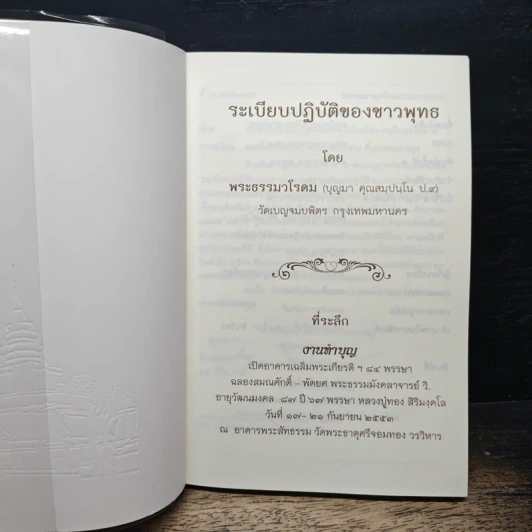 ระเบียบปฏิบัติของชาวพุทธ
โดย
พระธรรมวโรดม (บุญมา คุณสมฺปนฺโน ป.๙)
วัดเบญจมบพิตร กรุงเทพมหานคร
ที่ระลึก
งานทำบุญ
เปิดอาคารเฉลิมพระเกียรติ ฯ ๘๔ พรรษา
ฉลองสมณศักดิ์ – พัดยศ พระธรรมมังคลาจารย์ วิ.
อายุวัฒนมงคล ๘๗ ปี ๖๗ พรรษา หลวงปู่ทอง สิริมงฺคโล
วันที่ ๑๗– ๒๑ กันยายน ๒๕๕๓
ณ อาคารพระสัทธรรม วัดพระธาตุศรีจอมทอง วรวิหาร